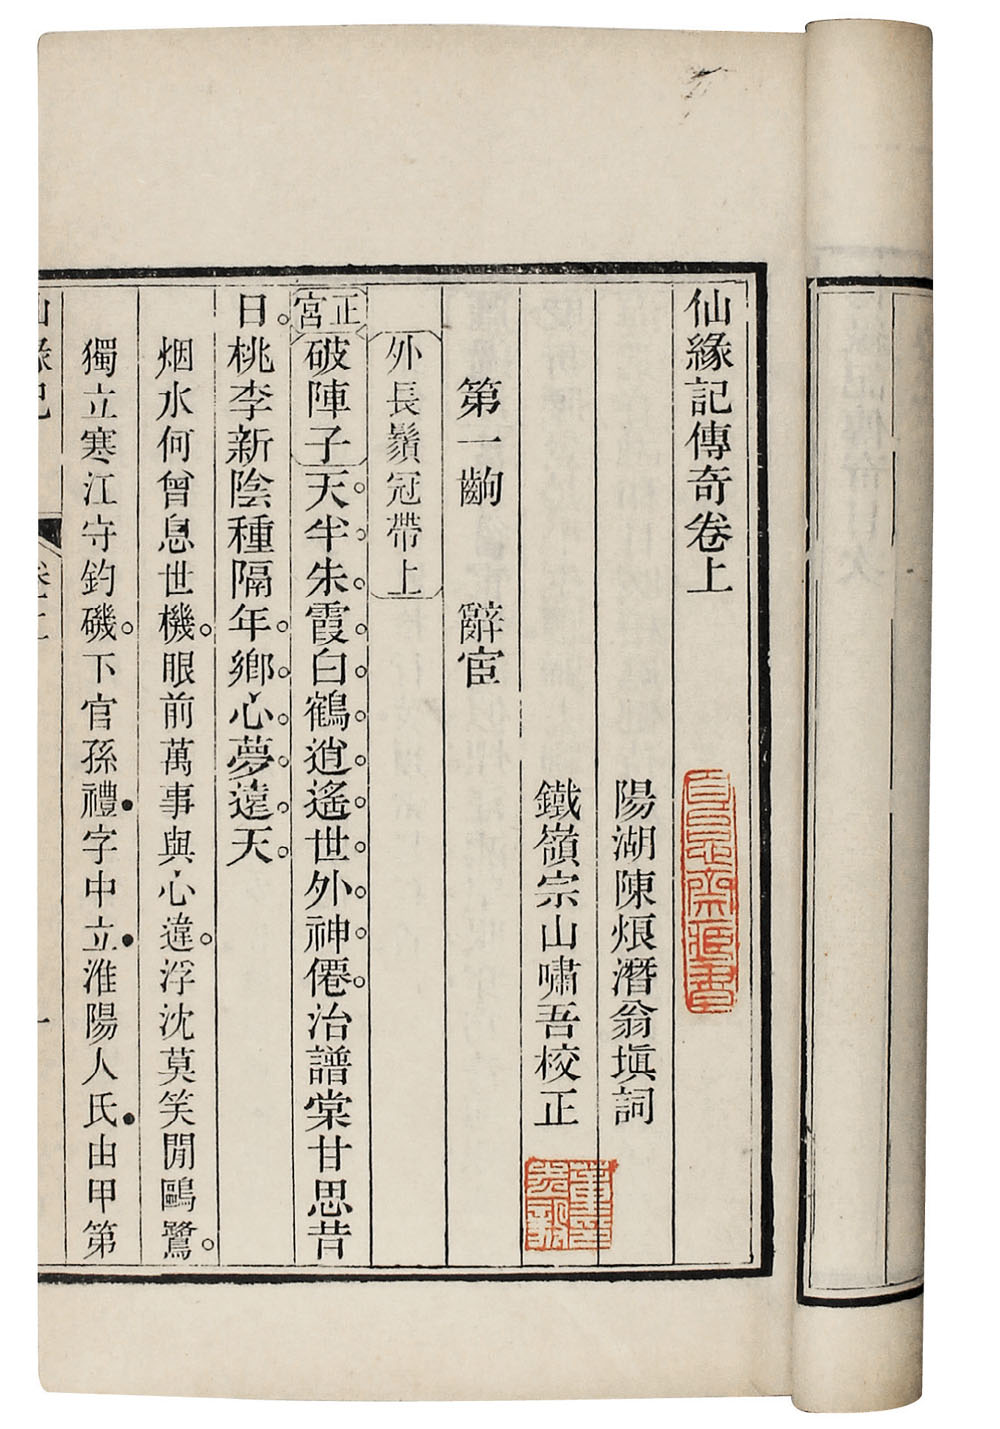 仙緣記傳奇卷上
陽湖陳烺潛翁塡詞
鐵嶺宗山嘯吾校正
第一齣 辭宦
外長鬚冠帶上
正宮破陣子天半朱霞白鶴逍遙世外神僊治譜棠甘思昔
日桃李新陰種隔年鄉心夢遠天
烟水何曾息世機眼前萬事與心違浮沈莫笑閒鷗鷺
獨立寒江守釣磯下官孫禮字中立淮陽人氏由甲第